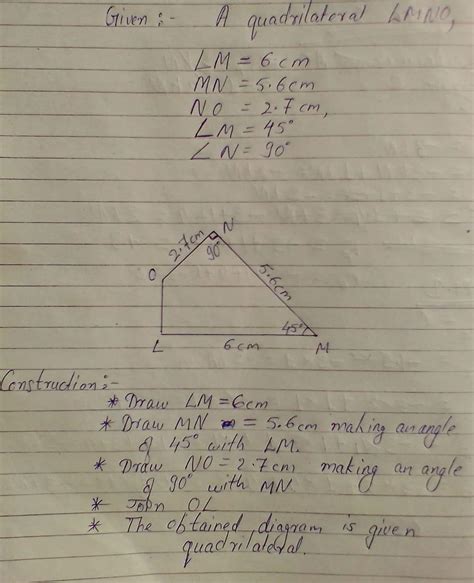 Given :- A quadrilateral LMNO,
LM = 6 cm
MN = 5.6 cm
NO = 2.7 cm,
∠M = 45°
∠N = 90°
N
2.7cm
90°
O
5.6cm
45°
L
6 cm
M
Construction:-
* Draw LM = 6 cm
* Draw MN = 5.6 cm making an angle
of 45° with LM.
* Draw NO = 2.7 cm making an angle
of 90° with MN
* Join OL
* The obtained diagram is given
quadrilateral.